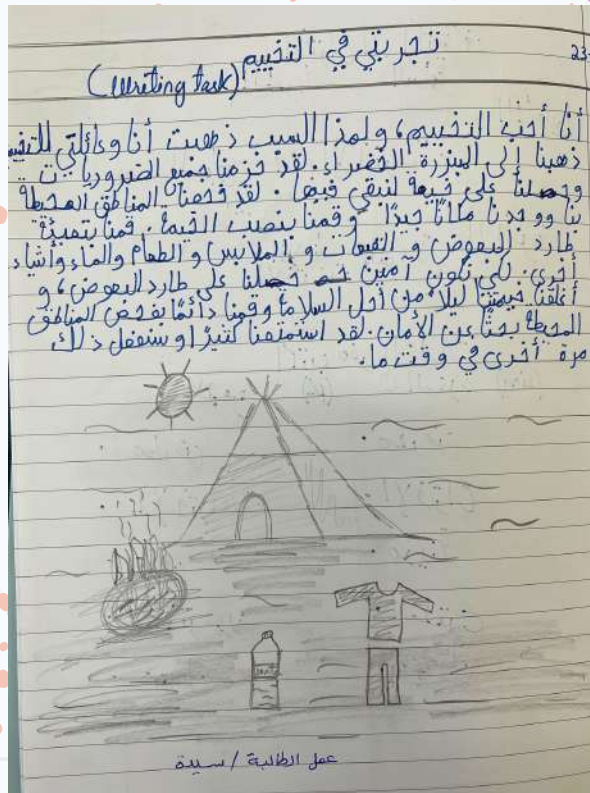 تجربتي في التخييم
23
(Writing task)
أنا أحب التخييم، ولهذا السبب ذهبت أنا وعائلتي للتخييم
ذهبنا إلى المزرعة الخضراء. لقد حزمنا جميع الضروريات
وحصلنا على خيمة لنبقى فيها. لقد فحصنا المناطق المحيطة
بنا ووجدنا مكانًا جيدًا وقمنا بنصب الخيمة. قمنا بتعبئة
طارد البعوض و القبعات و الملابس و الطعام والماء وأشياء
أخرى. لكي نكون آمنين حصلنا على طارد البعوض، و
أغلقنا خيمتنا ليلًا من أجل السلامة وقمنا دائمًا بفحص المناطق
المحيطة بحثًا عن الأمان. لقد استمتعنا كثيرًا وسنفعل ذلك
مرة أخرى في وقت ما.
عمل الطالبة / سيدة